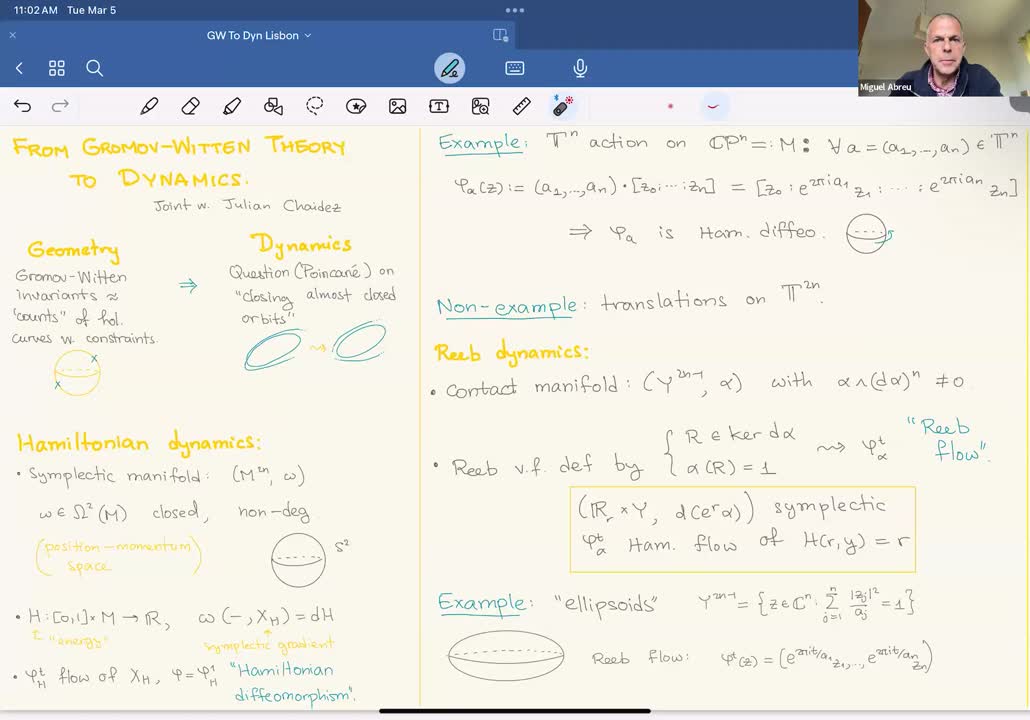 11:02 AM Tue Mar 5
GW To Dyn Lisbon
Miguel Abreu
FROM GROMOV-WITTEN THEORY
TO DYNAMICS.
Joint w. Julian Chaidez
Geometry
Gromov-Witten
invariants ≈
"counts" of hol.
curves w. constraints.
⇒
Dynamics
Question (Poincaré) on
"closing almost closed
orbits"
Hamiltonian dynamics:
• Symplectic manifold: (M²ⁿ, ω)
ω ∈ Ω²(M) closed, non-deg
(position-momentum
space)
S²
• H: [0,1] × M → ℝ, ω(−, X_H) = dH
"energy"
symplectic gradient
• φ_H^t flow of X_H, φ = φ_H^1 "Hamiltonian
diffeomorphism".
Example: 𝕋ⁿ action on ℂPⁿ =: M : ∀ a = (a₁, ..., aₙ) ∈ 𝕋ⁿ
φ_a(z) := (a₁, ..., aₙ) · [z₀ : ... : zₙ] = [z₀ : e^{2πia₁} z₁ : ... : e^{2πiaₙ} zₙ]
⇒ φ_a is Ham. diffeo.
Non-example: translations on 𝕋²ⁿ.
Reeb dynamics:
• Contact manifold: (Y²ⁿ⁻¹, α) with α ∧ (dα)ⁿ ≠ 0
• Reeb v.f. def by { R ∈ ker dα
α(R) = 1
⇝ φ_α^t "Reeb
flow".
(ℝ_r × Y, d(e^r α)) symplectic
φ_α^t Ham. flow of H(r,y) = r
Example: "ellipsoids" Y²ⁿ⁻¹ = {z ∈ ℂⁿ : ∑_{j=1}^n |z_j|²/a_j = 1}
Reeb flow: φ^t(z) = (e^{2πit/a₁} z₁, ..., e^{2πit/aₙ} zₙ)